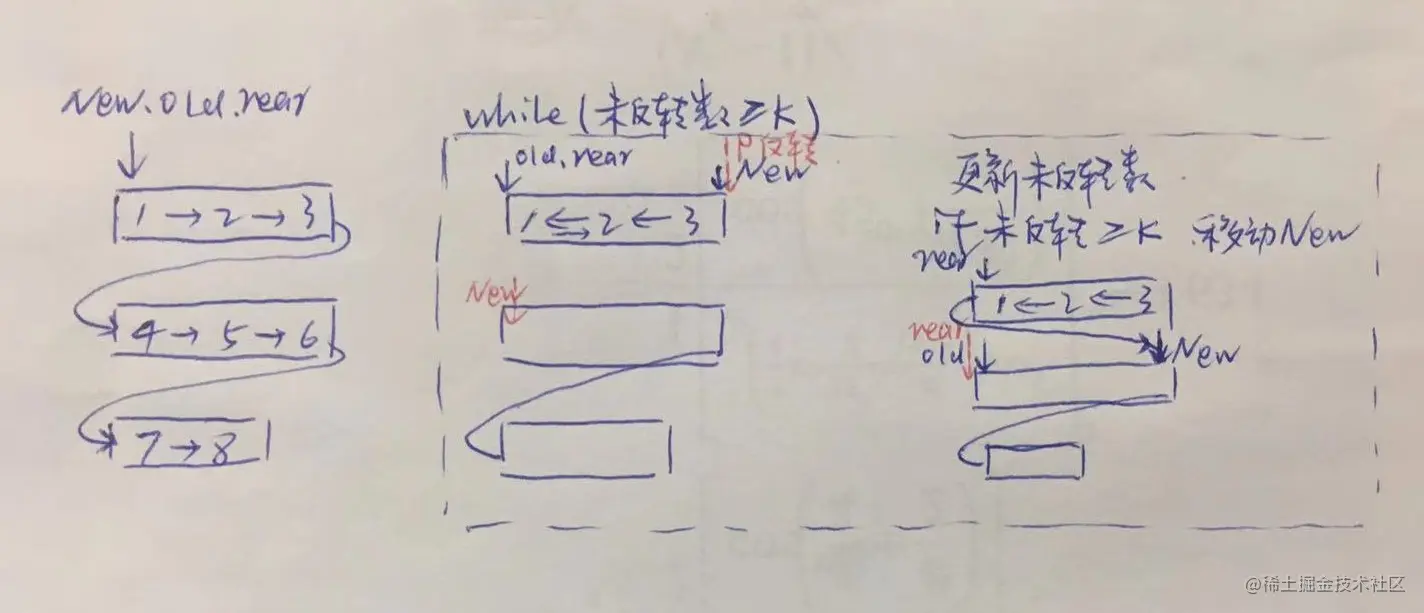 New.old.rear
1→2→3
4→5→6
7→8
while(未反转数≥K)
old.rear
P反转
New
1⇆2←3
New
更新未反转数
if 未反转≥K 移动New
rear
1←2←3
rear
old
New
@稀土掘金技术社区